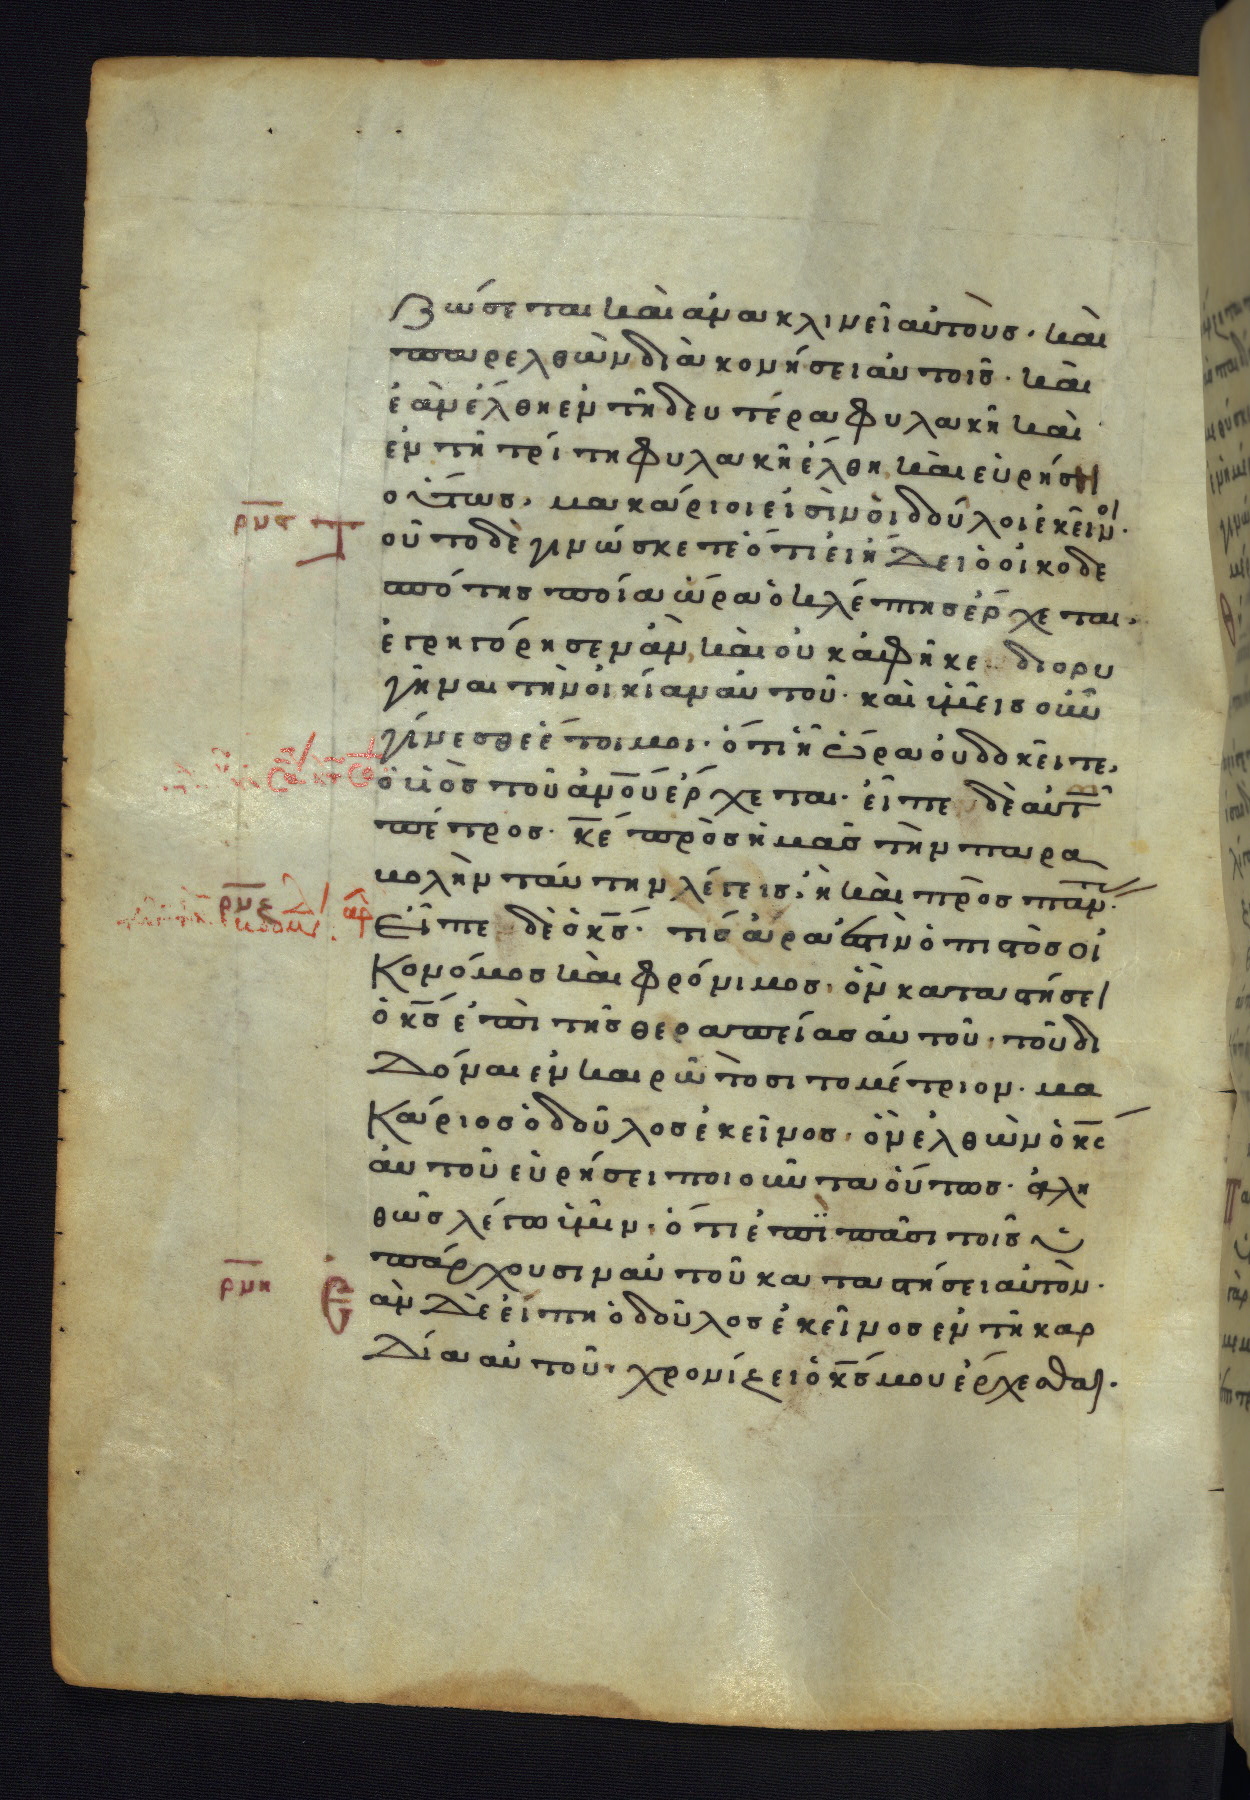 βώσεται και ἀνακλινεῖ αὐτοὺς· και
παρελθὼν διὰκονήσει αὐτοῖς· και
ἐὰν ἔλθη ἐν τῆ δευτέρα φυλακῆ και
ἐν τῆ τρίτη φυλακῆ ἔλθη, και εὑρήση
οὕτως, μακάριοι εἰσὶν ὁι δοῦλοι ἐκεῖνοι·
ρμϛ Τοῦτο δὲ γινώσκετε ὅτι εἰ ἤδει ὁ οἰκοδε
σπότης ποία ὥρα ὁ κλέπτης ἔρχεται,
ἐγρηγόρησεν ἀν, και οὐκ ἀφῆκε διορυ
γῆναι τὴν οἰκίαν αὐτοῦ· καὶ ὑμεῖς οὖν
γίνεσθε ἕτοιμοι· ὅτι ἧ ὥρα οὐ δοκεῖτε,
ὁ υἱὸς τοῦ ἀνου ἔρχεται· εἶπε δὲ αὐτ
πέτρος· κε πρὸς ἡμᾶς τὴν παρα
βολὴν ταύτην λέγεις, ἢ και πρὸς παν·
Εἶπε δὲ ὁ κς· τίς ἄρα ἐστὶν ὁ πιστὸς οἰ
Κονόμος και φρόνιμος· ὃν καταστήσει
ὁ κς ἐπὶ τῆς θεραπείας αὐτοῦ· τοῦ δι
Δόναι ἐν καιρῶ τὸ σιτομέτριον· μα
Κάριος ὁ δοῦλος ἐκεῖνος· ὃν ἐλθὼν ὁ κς
αὐτοῦ εὑρήσει ποιοῦντα οὕτως· ἀλη
θῶς λέγω ὑμῖν, ὅτι ἐπὶ πᾶσι τοῖς ὑ
πάρχουσιν αὐτοῦ καταστήσει αὐτὸν·
ρμη Ἐὰν Δὲ εἴπη ὁ δοῦλος ἐκεῖνος ἐν τῆ καρ
Δία αὐτοῦ· χρονίζει ὁ κς μου ἔρχεσθαι·